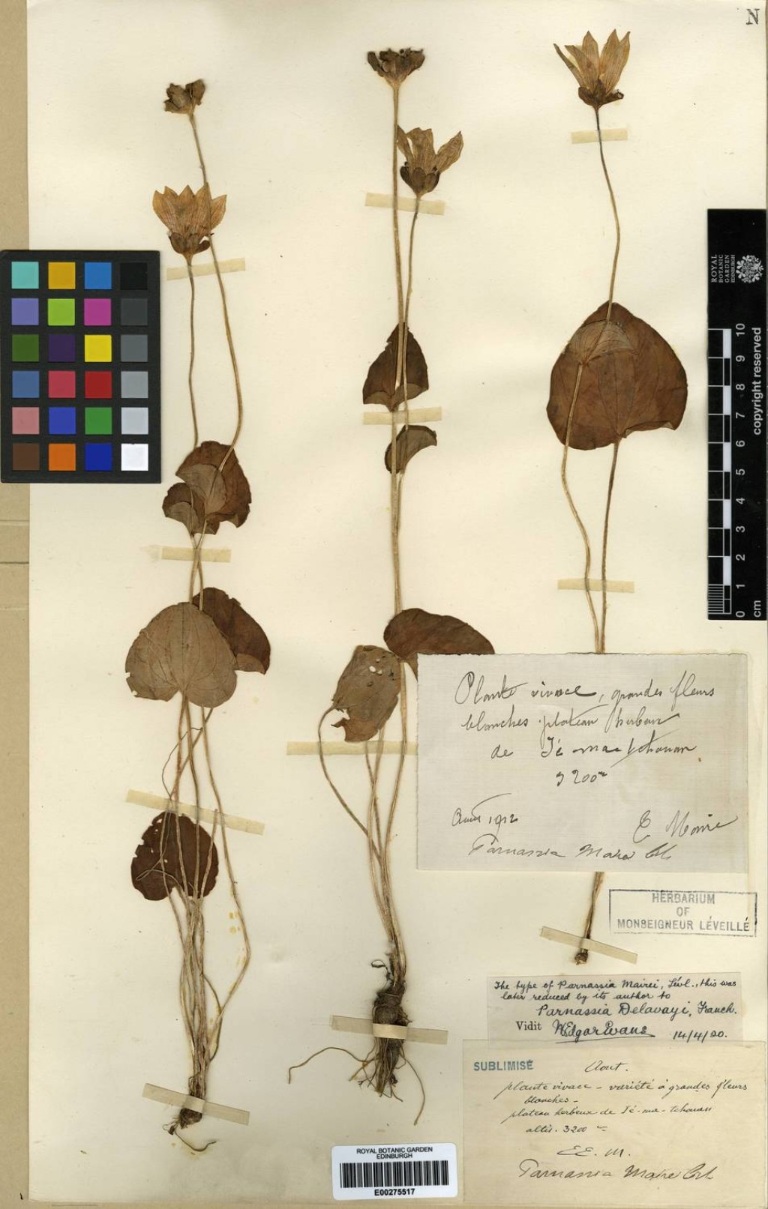 N
ROYAL
BOTANIC
GARDEN
EDINBURGH
copyright reserved
0 1 2 3 4 5 6 7 8 9 10
cm
Plante vivace, grandes fleurs
blanches plateau herbeux
de Jé-ma-tchouan
3200m
Août 1912
E Maire
Parnassia Mairei Lvl.
HERBARIUM
OF
MONSEIGNEUR LÉVEILLÉ
The type of Parnassia Mairei, Lévl., this was
later reduced by its author to
Parnassia Delavayi, Franch.
Vidit WEdgarEvans 14/4/20.
SUBLIMISÉ
Aout.
plante vivace - variété à grandes fleurs
blanches -
plateau herbeux de Jé-ma-tchouan
altit. 3200 m
E. E. M.
Parnassia Mairei Lvl
ROYAL BOTANIC GARDEN
EDINBURGH
E00275517